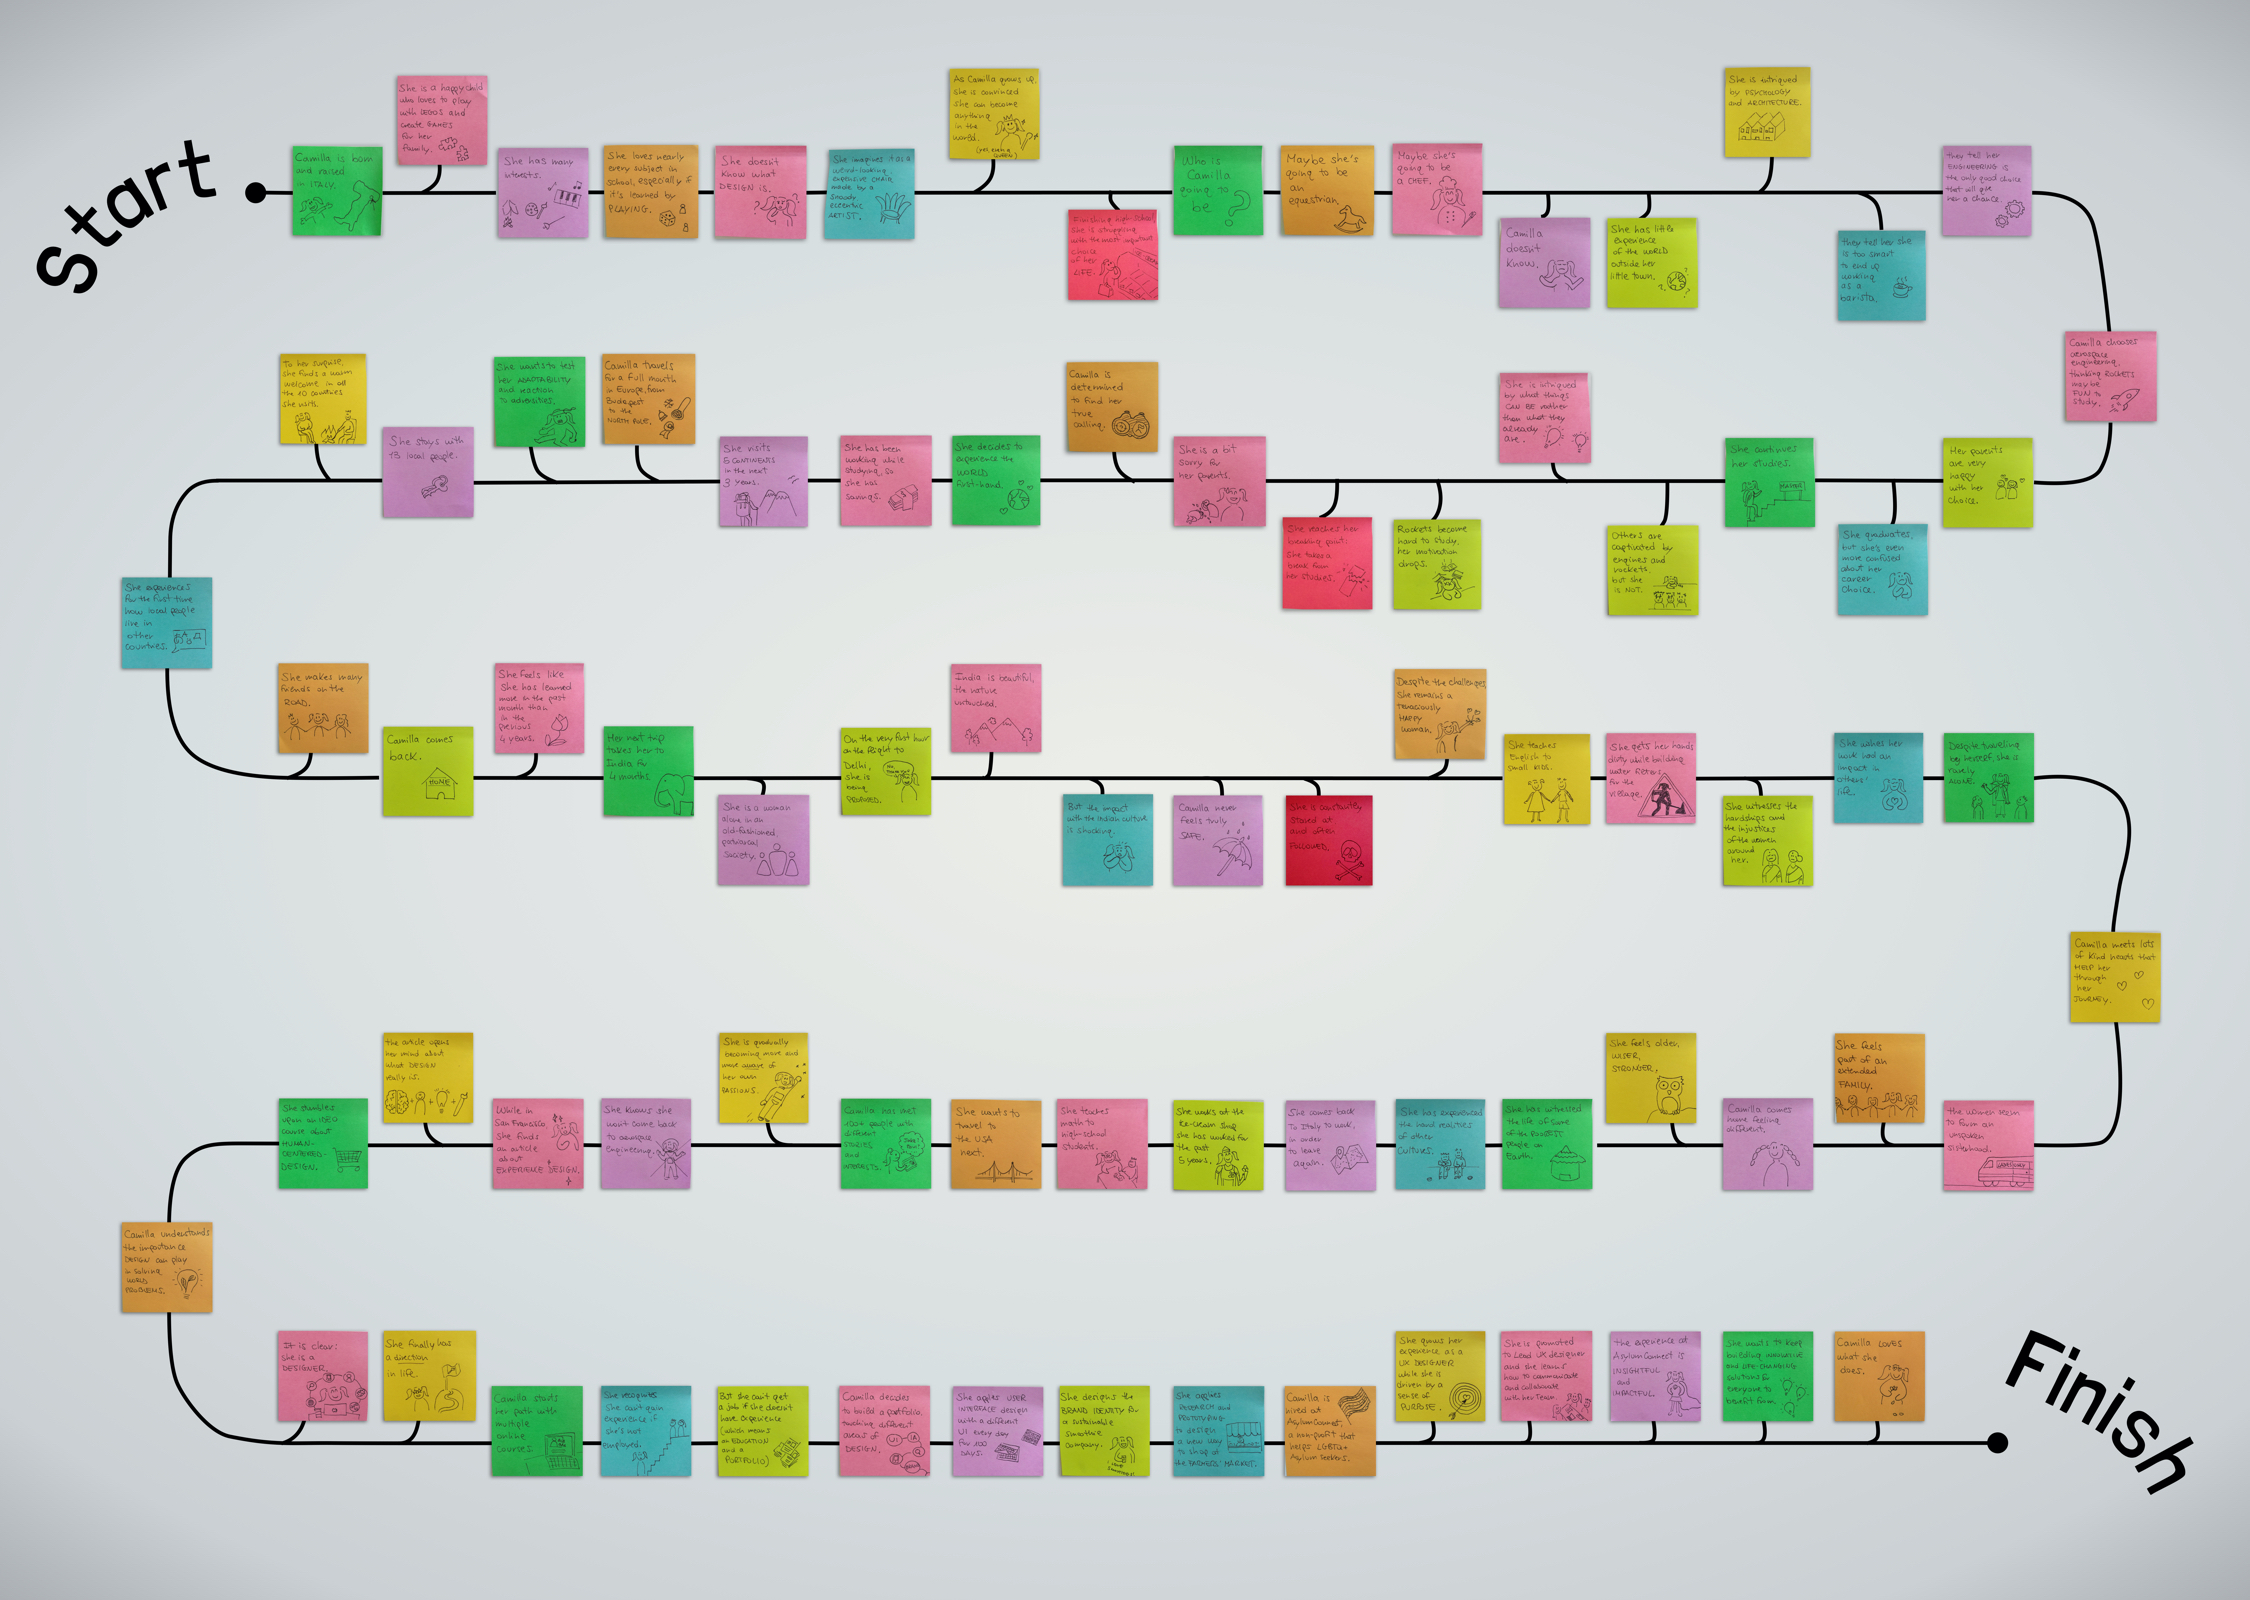 Start
Camilla is born
and raised
in ITALY.
She is a happy child
who loves to play
with LEGOS and
create GAMES
for her
family.
She has many
interests.
She loves nearly
every subject in
school, especially if
it's learned by
PLAYING.
She doesn't
know what
DESIGN is.
She imagines it as a
weird-looking,
expensive CHAIR
made by a
snooty
eccentric
ARTIST.
As Camilla grows up,
she is convinced
she can become
anything
in the
world.
(yes, even a
QUEEN)
Finishing high-school
She is struggling
with the most important
choice
of her
LIFE.
Who is
Camilla
going to
be ?
Maybe she's
going to be
an
equestrian.
Maybe she's
going to be
a CHEF.
Camilla
doesn't
know.
She has little
experience
of the WORLD
outside her
little town.
She is intrigued
by PSYCHOLOGY
and ARCHITECTURE.
they tell her she
is too smart
to end up
working
as a
barista.
they tell her
ENGINEERING is
the only good choice
that will give
her a chance.
Camilla chooses
aerospace
engineering,
thinking ROCKETS
may be
FUN to
study.
Her parents
are very
happy
with her
choice.
She graduates,
but she's even
more confused
about her
career
choice.
She continues
her studies.
MASTER
Others are
captivated by
engines and
rockets,
but she
is NOT.
She is intrigued
by what things
CAN BE rather
than what they
already
are.
Rockets become
hard to study,
her motivation
drops.
She reaches her
breaking point:
She takes a
break from
her studies.
She is a bit
sorry for
her parents.
Camilla is
determined
to find her
true
calling.
She decides to
experience the
WORLD
first-hand.
She has been
working while
studying, so
she has
savings.
She visits
5 CONTINENTS
in the next
3 years.
Camilla travels
for a full month
in Europe, from
Budapest
to the
NORTH POLE.
She wants to test
her ADAPTABILITY
and reaction
to adversities.
She stays with
43 local people.
To her surprise,
she finds a warm
welcome in all
the 10 countries
she visits.
She experiences
for the first time
how local people
live in
other
countries.
She makes many
friends on the
ROAD.
Camilla comes
back.
HOME
She feels like
She has learned
more in the past
month than
in the
previous
4 years.
Her next trip
takes her to
India for
4 months.
She is a woman
alone in an
old-fashioned,
patriarcal
society.
On the very first hour
on the flight to
Delhi,
she is
being
PROPOSED.
India is beautiful,
the nature
untouched.
But the impact
with the Indian culture
is shocking.
Camilla never
feels truly
SAFE.
She is constantly
stared at
and often
FOLLOWED.
Despite the challenges,
She remains a
tenaciously
HAPPY
woman.
She teaches
English to
small kids.
She gets her hands
dirty while building
water filters
for the
village.
She witnesses the
hardships and
the injustices
of the women
around
her.
She wishes her
work had an
impact in
others'
life.
Despite traveling
by herself, she is
rarely
ALONE.
Camilla meets lots
of kind hearts that
HELP her
through
her
JOURNEY.
the women seem
to form an
unspoken
sisterhood.
She feels
part of an
extended
FAMILY.
Camilla comes
home feeling
different.
She feels older,
WISER,
STRONGER.
She has witnessed
the life of some
of the POOREST
people on
Earth.
She has experienced
the hard realities
of other
cultures.
She comes back
To Italy to work,
in order
to leave
again.
She works at the
ice-cream shop
she has worked for
the past
5 years.
She teaches
math to
high-school
students.
She wants to
travel to
the USA
next.
Camilla has met
100+ people with
different
STORIES
and
INTERESTS.
She is gradually
becoming more and
more aware of
her own
PASSIONS.
She knows she
won't come back
to aerospace
engineering.
While in
San Francisco
She finds
an article
about
EXPERIENCE DESIGN.
the article opens
her mind about
what DESIGN
really is.
She stumbles
upon an IDEO
course about
HUMAN-
CENTERED-
DESIGN.
Camilla understands
the importance
DESIGN can play
in solving
WORLD
PROBLEMS.
It is clear:
she is a
DESIGNER.
She finally has
a direction
in life.
Camilla starts
her path with
multiple
online
courses.
She recognizes
She can't gain
experience if
she's not
employed.
But she can't get
a job if she doesn't
have experience
(which means
an EDUCATION
and a
PORTFOLIO)
Camilla decides
to build a portfolio,
touching different
areas of
DESIGN.
She applies USER
INTERFACE design
with a different
UI every day
for 100
DAYS.
She designs the
BRAND IDENTITY for
a sustainable
smoothie
company.
She applies
RESEARCH and
PROTOTYPING
to design
a new way
to shop at
the FARMERS' MARKET.
Camilla is
hired at
AsylumConnect,
a non-profit that
helps LGBTQ+
Asylum seekers.
She grows her
experience as a
UX DESIGNER
while she is
driven by a
sense of
PURPOSE.
She is promoted
to Lead UX designer
and she learns
how to communicate
and collaborate
with her team.
the experience at
AsylumConnect is
INSIGHTFUL
and
IMPACTFUL.
She wants to keep
building innovative
and LIFE-CHANGING
solutions for
everyone to
benefit from.
Camilla LOVES
what she
does.
Finish